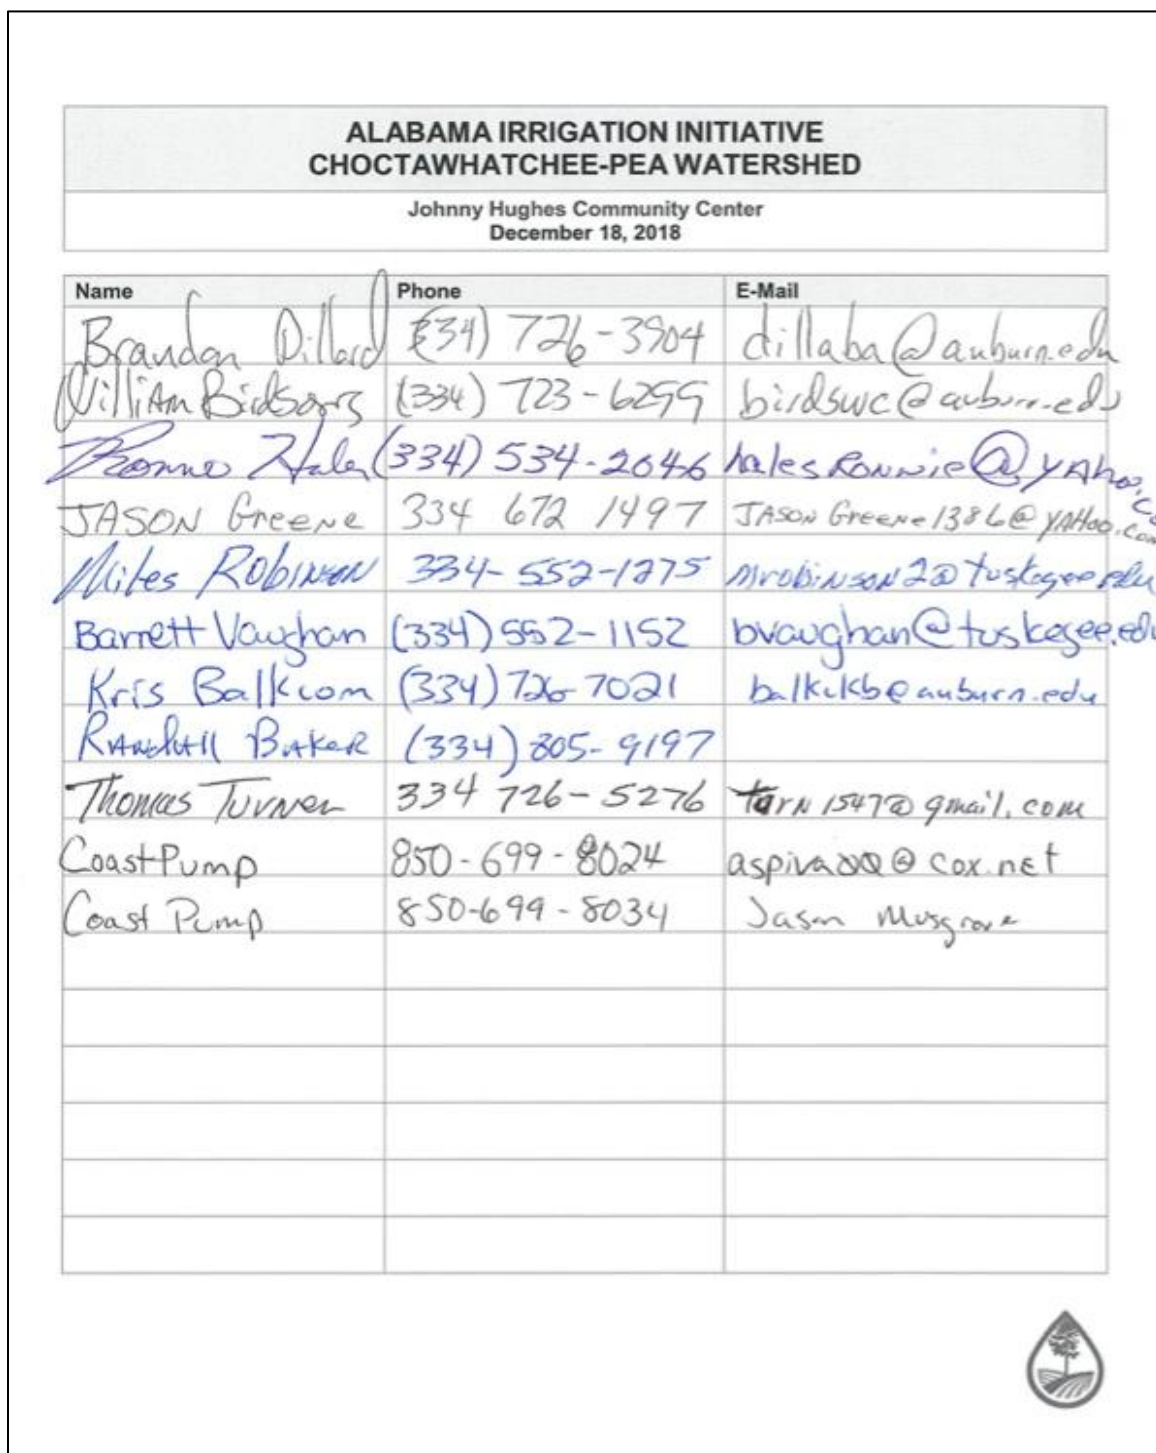 ALABAMA IRRIGATION INITIATIVE
CHOCTAWHATCHEE-PEA WATERSHED
Johnny Hughes Community Center
December 18, 2018
Name Phone E-Mail
Brandon Dillard (334) 726-3904 dillaba@auburn.edu
William Birdsong (334) 723-6299 birdswc@auburn.edu
Ronnie Hales (334) 534-2046 halesRonnie@yahoo.co
JASON Greene 334 672 1497 JASONGreene1386@YAHoo.com
Miles ROBINSON 334-552-1275 mrobinson2@tuskegee.edu
Barrett Vaughan (334) 552-1152 bvaughan@tuskegee.edu
Kris Balkcom (334) 726-7021 balkckb@auburn.edu
RANdAll BAKER (334) 805-9197
Thomas Turner 334 726-5276 turn1547@gmail.com
Coast Pump 850-699-8024 @cox.net
Coast Pump 850-699-8034 Jason Musgrove